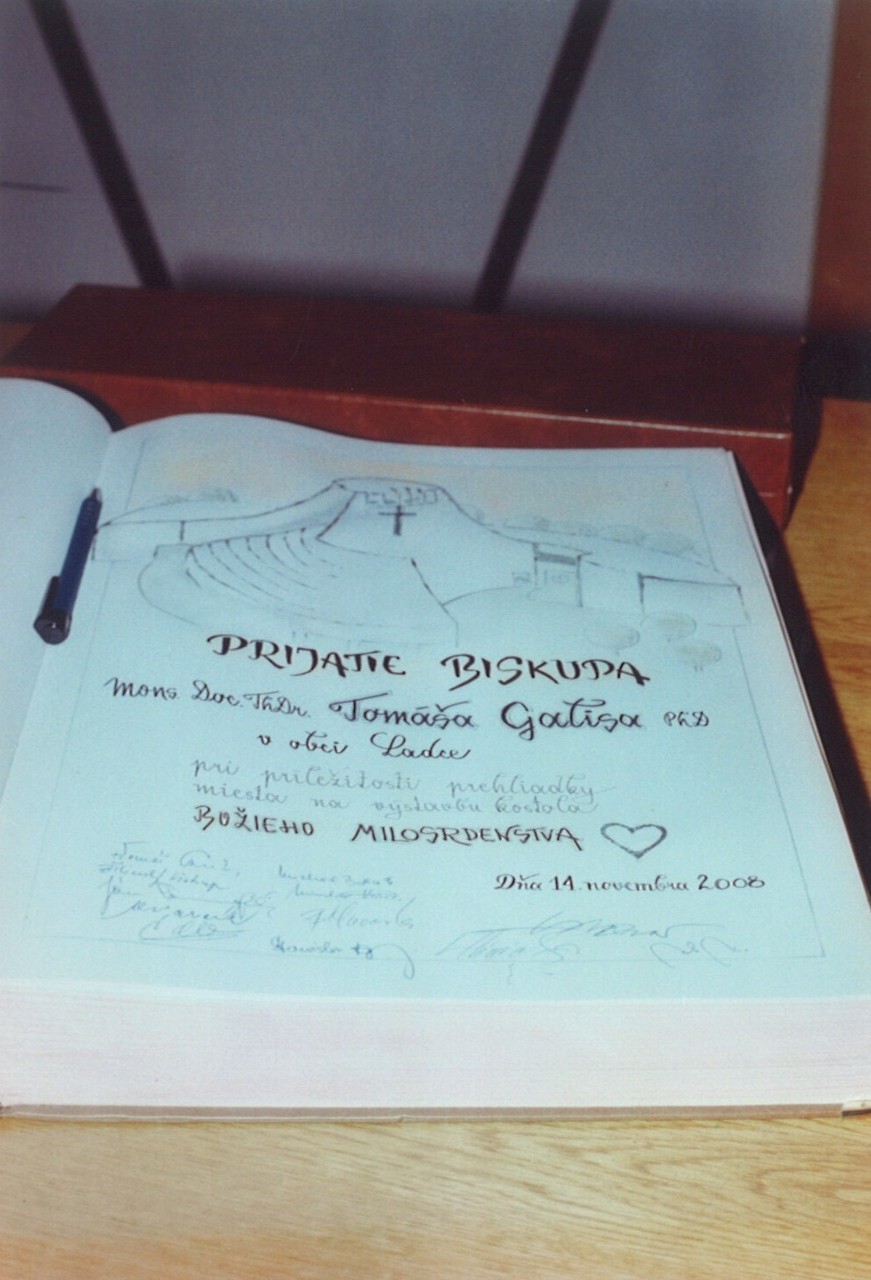 PRIJATIE BISKUPA
Mons. Doc. ThDr. Tomáša Galisa PhD
v obci Ladce
pri príležitosti prehliadky
miesta na výstavbu kostola
BOŽIEHO MILOSRDENSTVA
Dňa 14. novembra 2008